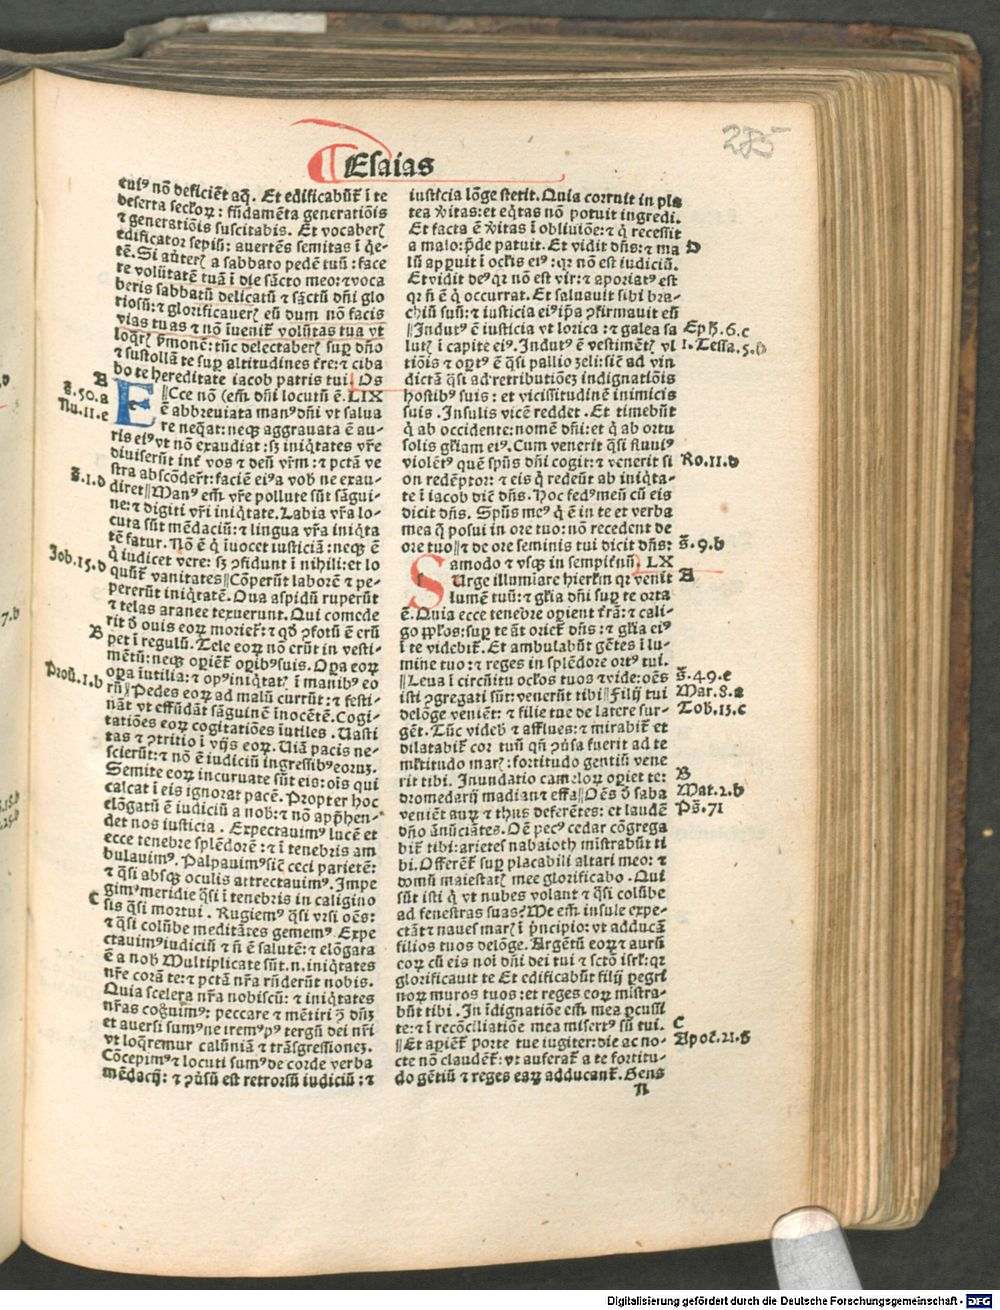 285
Esaias
cuiꝰ nō deficiēt aq̄. Et edificabūt̄ ī te
deserta secloꝝ: fūdamēta generatiōis
⁊ generatiōis suscitabis. Et vocaberꝭ
edificator sepiū: auertēs semitas ī q̄e-
tē. Si auterꝭ a sabbato pedē tuū: face
te volūtatē tuā ī die sācto meo: ⁊ voca
beris sabbatū delicatū ⁊ sāctū dn̄i glo
riosū: ⁊ glorificauerꝭ eū dum nō facis
vias tuas ⁊ nō īuenit̄ volūtas tua vt
loq̄rꝭ ẜmonē: tūc delectaberꝭ suꝑ dn̄o
⁊ sustollā te suꝑ altitudines t̄re: ⁊ ciba
bo te hereditate iacob patris tui. Os
B
s̄.50.a
Nu.11.e
ECce nō em̄ dn̄i locutū ē. LIX
ē abbreuiata manꝰ dn̄i vt salua
re neq̄at: neqꝫ aggrauata ē au-
ris eiꝰ vt nō exaudiat: sꝫ iniq̄tates vr̄e
diuiserūt int̄ vos ⁊ deū vr̄m: ⁊ pctā ve
stra abscōder̄t: faciē eiꝰ a vob̄ ne exau-
s̄.1.d
diret ‖ Manꝰ em̄ vr̄e pollute sūt sāgui-
ne: ⁊ digiti vr̄i iniq̄tate. Labia vr̄a lo-
cuta sūt mēdaciū: ⁊ lingua vr̄a iniq̄ta
tē fatur. Nō ē q̄ īuocet iusticiā: neqꝫ ē
q̄ iudicet vere: sꝫ ꝯfidunt ī nihili: et lo
Job.15.d
quūt̄ vanitates ‖ Cōperūt laborē ⁊ pe-
pererūt iniq̄tatē. Oua aspidū ruperūt
⁊ telas aranee texuerunt. Qui comede
rit ď ouis eoꝝ moriet̄: ⁊ qď ꝯfotū ē erū
B
pet ī regulū. Tele eoꝝ nō erūt in vesti-
mētū: neqꝫ oꝑiēt̄ oꝑibꝰ suis. Oꝑa eoꝝ
Prou.1.b
oꝑa īutilia: ⁊ opꝰ iniq̄tatꝭ ī manibꝰ eo
rū ‖ Pedes eoꝝ ad malū currūt: ⁊ festi-
nāt vt effūdāt sāguinē īnocētē. Cogi-
tatiōes eoꝝ cogitatiōes īutiles. Uasti
tas ⁊ ꝯtritio ī vijs eoꝝ. Uiā pacis ne-
scierūt: ⁊ nō ē iudiciū ingressibꝰ eorum.
Semite eoꝝ incuruate sūt eis: oīs qui
calcat ī eis ignorat pacē. Propter hoc
elōgatū ē iudiciū a nob̄: ⁊ nō appͣhen-
det nos iusticia. Expectauimꝰ lucē et
ecce tenebre splēdorē: ⁊ ī tenebris am
bulauimꝰ. Palpauimꝰ sic̄ ceci parietē:
⁊ q̄si absqꝫ oculis attrectauimꝰ. Impe
C
gimꝰ meridie q̄si ī tenebris in caligino
sis q̄si mortui. Rugiemꝰ q̄si vrsi oēs:
⁊ q̄si colūbe meditātes gememꝰ. Expe
ctauimꝰ iudiciū ⁊ n̄ ē salutē: ⁊ elōgata
ē a nob̄ Multiplicate sūt. n. iniq̄tates
nr̄e corā te: ⁊ pctā nr̄a rn̄derūt nobis.
Quia scelera nr̄a nobiscū: ⁊ iniq̄tates
nr̄as cognouimꝰ: peccare ⁊ mētiri ꝯ dn̄ꝫ
et auersi sumꝰ ne iremꝰ pꝰ tergū dei nr̄i
vt loq̄remur calūniā ⁊ trāsgressioneꝫ.
Cōcepimꝰ ⁊ locuti sumꝰ de corde verba
mēdacij: ⁊ ꝯuersū est retrorsū iudiciū: ⁊
iusticia lōge stetit. Quia corruit in pla
tea v̄itas: et eq̄tas nō potuit ingredi.
Et facta ē v̄itas ī obliuiōe: ⁊ q̄ recessit
a malo: p̄de patuit. Et vidit dn̄s: ⁊ ma
D
lū apparuit ī oclis eiꝰ: qr nō est iudiciū.
Et vidit deꝰ qr nō est vir: ⁊ aporiatꝰ est
qr n̄ ē q̄ occurrat. Et saluauit sibi bra-
chiū suū: ⁊ iusticia eiꝰ ip̄a ꝯfirmauit eū
‖ Indutꝰ ē iusticia vt lorica: ⁊ galea sa
Eph.6.c
lutꝭ ī capite eiꝰ. Indutꝰ ē vestimētꝭ vl
1.Tessa.5.b
tiōis ⁊ oꝑtꝰ ē q̄si pallio zeli: sic̄ ad vin
dictā q̄si ad retributiōeꝫ indignatiōis
hostibꝰ suis: et vicissitudinē inimicis
suis. Insulis vicē reddet. Et timebūt
q̄ ab occidente: nomē dn̄i: et q̄ ab ortu
solis gl̄iam eiꝰ. Cum venerit q̄si fluuiꝰ
violētꝰ quē sp̄ūs dn̄i cogit: ⁊ venerit si
Ro.11.d
on redēptor: ⁊ eis q̄ redeūt ab iniq̄ta-
te ī iacob dic̄ dn̄s. Hoc fedꝰ meū cū eis
dicit dn̄s. Spūs meꝰ q̄ ē in te et verba
mea q̄ posui in ore tuo: nō recedent de
ore tuo ‖ ⁊ de ore seminis tui dicit dn̄s:
s̄.9.b
amodo ⁊ vsqꝫ in sempit̄nū. LX
SUrge illumīare hierl̄m qr venit
A
lumē tuū: ⁊ gl̄ia dn̄i suꝑ te orta
ē. Quia ecce tenebre oꝑient t̄rā: ⁊ cali-
go ppl̄os: suꝑ te āt oriet̄ dn̄s: ⁊ gl̄ia eiꝰ
ī te videbit̄. Et ambulab̄t gētes ī lu-
mine tuo: ⁊ reges in splēdore ortꝰ tui.
‖ Leua ī circūitu oclos tuos ⁊ vide: oēs
s̄.49.e
isti ꝯgregati sūt: venerūt tibi ‖ Filij tui
Mar.8.a
delōge veniēt: ⁊ filie tue de latere sur-
Tob.13.c
gēt. Tūc videb̄ ⁊ afflues: ⁊ mirabit̄ et
dilatabit̄ cor tuū qn̄ ꝯūsa fuerit ad te
ml̄titudo marꝭ: fortitudo gentiū vene
rit tibi. Inundatio cameloꝝ oꝑiet te:
B
dromedarij madian ⁊ effa ‖ Oēs ď saba
Mat.2.b
veniēt auꝝ ⁊ thus deferētes: et laudē
Ps̄.71
dn̄o ānūciātes. Oē pecꝰ cedar cōgrega
bit̄ tibi: arietes nabaioth mīstrabūt ti
bi. Offerēt̄ suꝑ placabili altari meo: ⁊
domū maiestatꝭ mee glorificabo. Qui
sūt isti q̄ vt nubes volant ⁊ q̄si colūbe
ad fenestras suas? Me em̄ insule expe-
ctāt ⁊ naues marꝭ ī pͥncipio: vt adducā
filios tuos delōge. Argētū eoꝝ ⁊ aurū
eoꝝ cū eis noī dn̄i dei tui ⁊ scto isrl̄: qr
glorificauit te Et edificabūt filij ꝑegri
noꝝ muros tuos: et reges eoꝝ mīstra-
būt tibi. In īdignatiōe em̄ mea ꝑcussi
te: ⁊ ī recōciliatiōe mea misertꝰ sū tui.
C
‖ Et aꝑiēt̄ porte tue iugiter: die ac no-
Apoc̄.21.g
cte nō claudēt̄: vt auferat̄ a te fortitu-
do gētiū ⁊ reges eaꝝ adducant̄. Gens
n
Digitalisierung gefördert durch die Deutsche Forschungsgemeinschaft - DFG